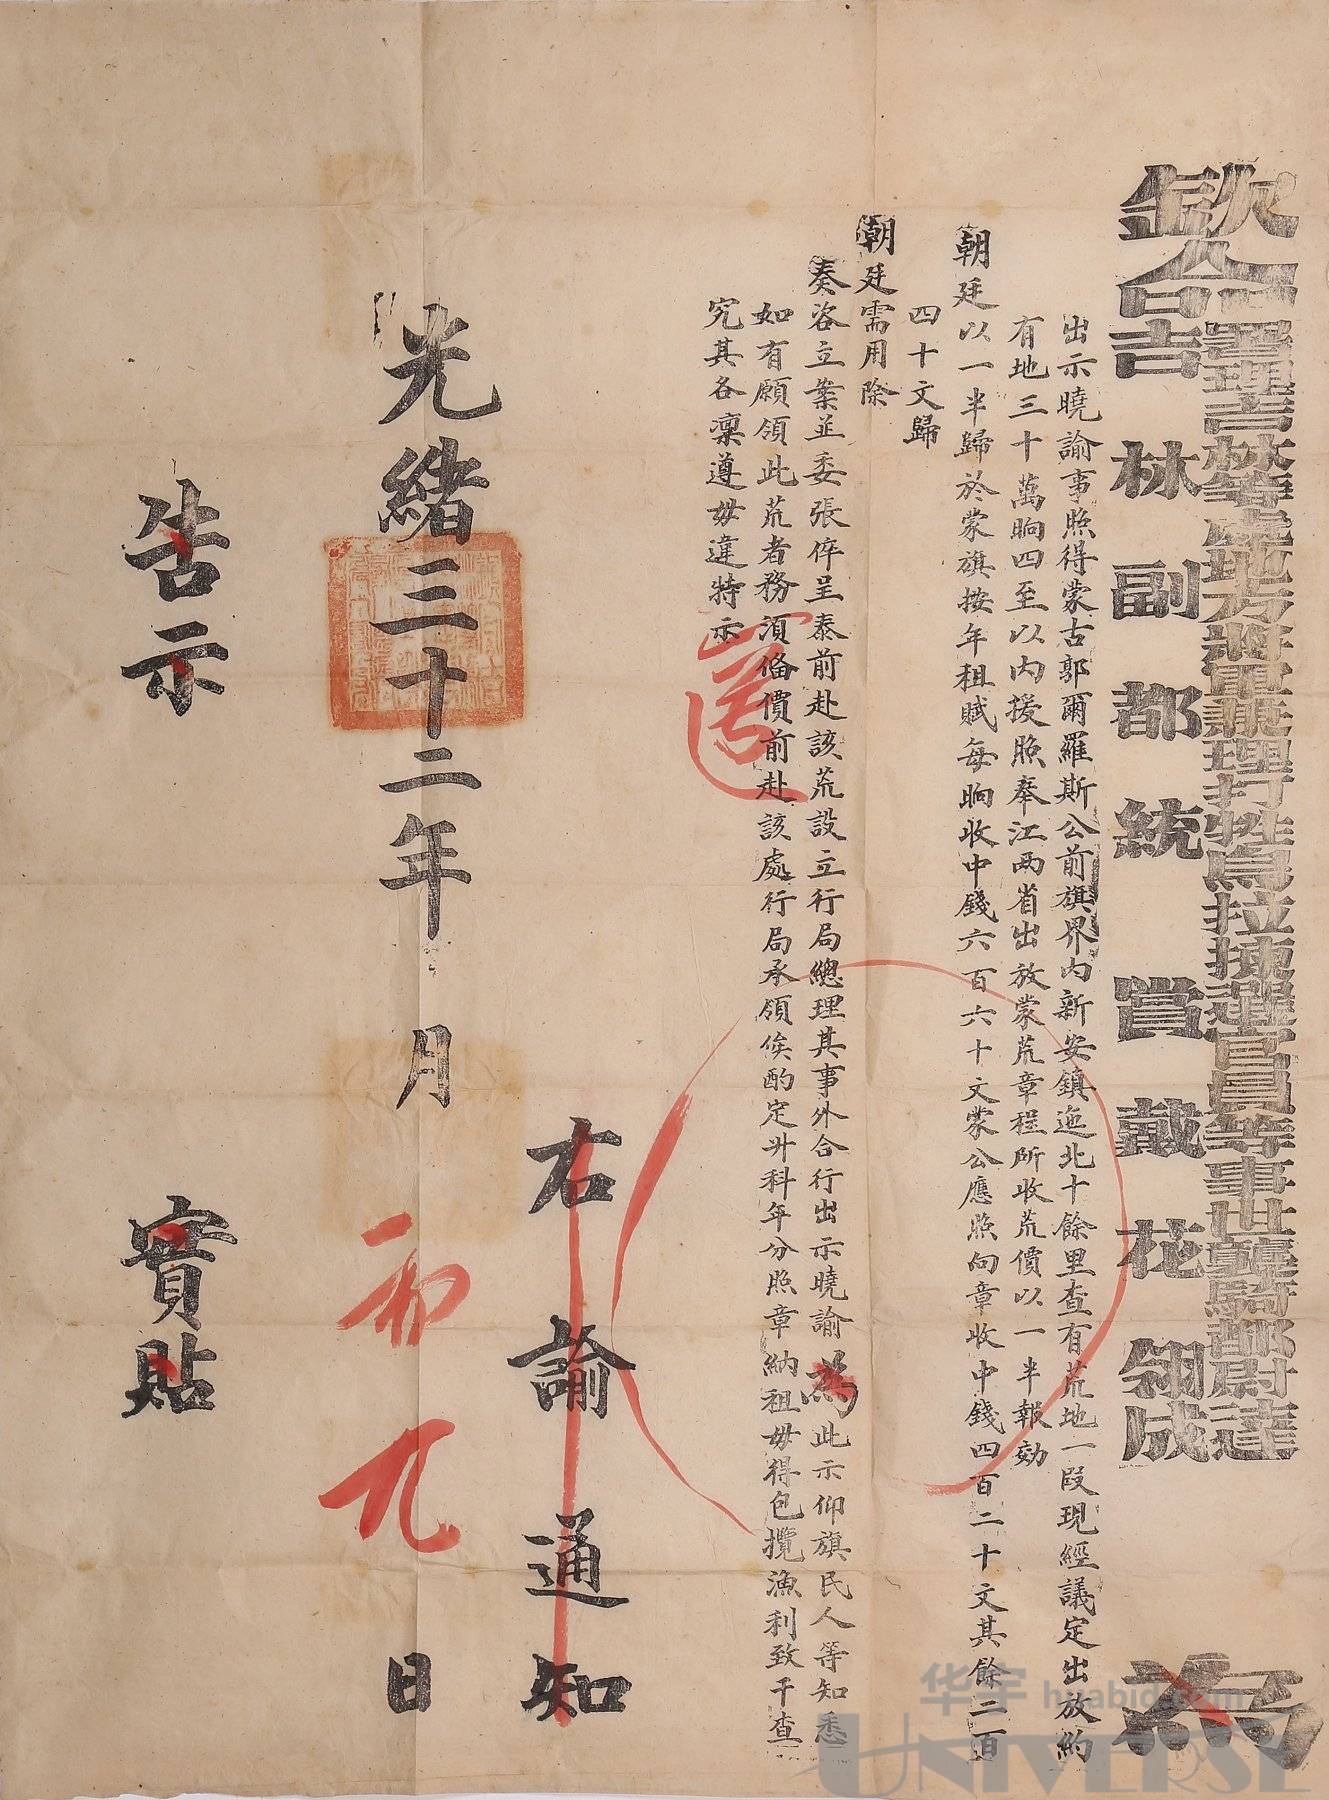 欽命
署理吉林等處地方將軍兼理打牲烏拉揀選官員等事世襲騎都尉達
吉林副都統賞戴花翎成
為
出示曉諭事照得蒙古郭爾羅斯公前旗界內新安鎮迤北十餘里查有荒地一段現經議定出放約
有地三十萬晌四至以內援照奉江兩省出放蒙荒章程所收荒價以一半報効
朝廷以一半歸於蒙旗按年租賦每晌收中錢六百六十文蒙公應照向章收中錢四百二十文其餘二百
四十文歸
朝廷需用除
奏咨立案並委張倅呈泰前赴該荒設立行局總理其事外合行出示曉諭為此示仰旗民人等知悉
如有願領此荒者務須備價前赴該處行局承領俟酌定升科年分照章納租毋得包攬漁利致干查
究其各凜遵毋違特示
遵
右諭通知
光緒三十二年月日
初九
告示
實貼
华宇 huabid.com
UNIVERSE